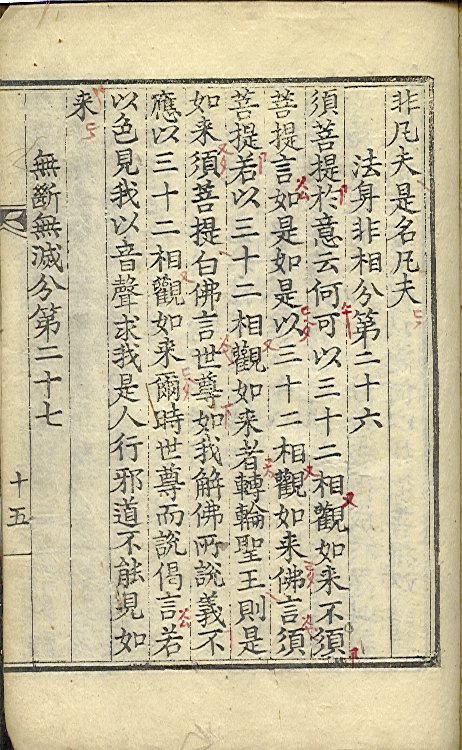 非凡夫是名凡夫
法身非相分第二十六
須菩提於意云何可以三十二相觀如来不須
菩提言如是如是以三十二相觀如来佛言須
菩提若以三十二相觀如来者轉輪聖王則是
如来須菩提白佛言世尊如我解佛所說義不
應以三十二相觀如来爾時世尊而說偈言若
以色見我以音聲求我是人行邪道不能見如
来
無斷無滅分第二十七
十五